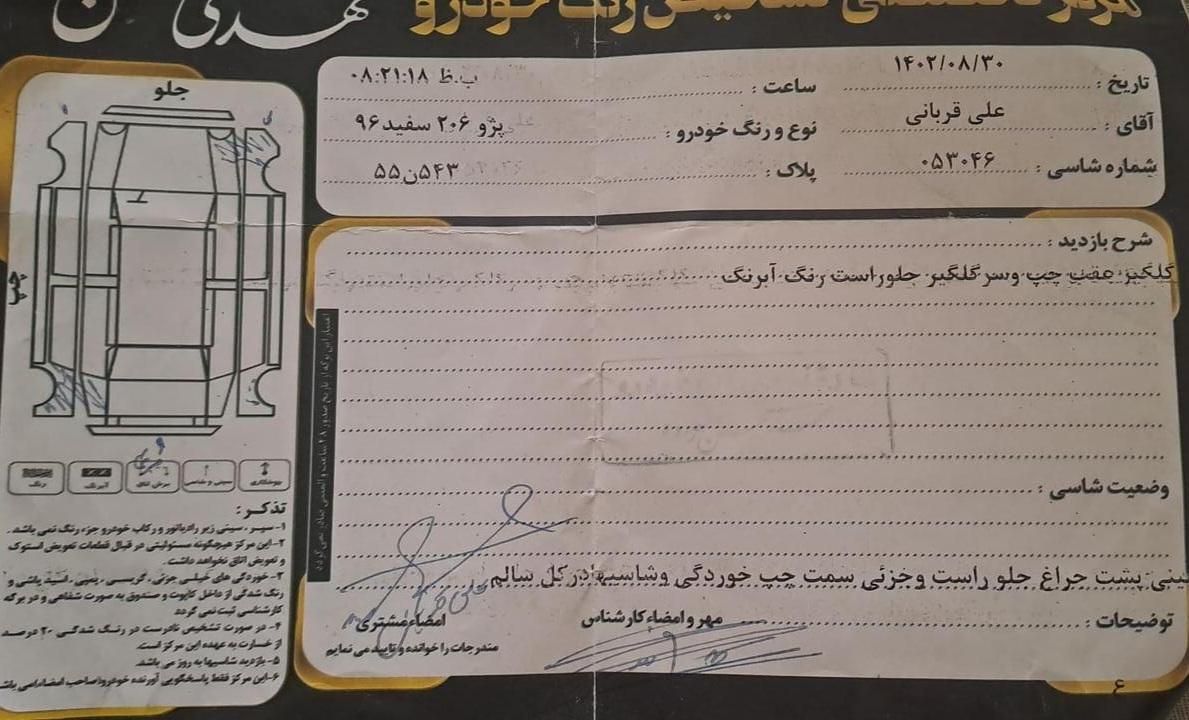 تشخیص رنگ خودرو
مهدی
تاریخ : ۱۴۰۲/۰۸/۳۰
ساعت : ۰۸:۲۱:۱۸ ب.ظ
آقای : علی قربانی
نوع و رنگ خودرو : پژو ۲۰۶ سفید۹۶
شماره شاسی : ۰۵۳۰۴۶
پلاک : ۵۴۳ن۵۵
جلو
چپ
شرح بازدید :
گلگیر عقب چپ وسر گلگیر جلوراست رنگ آبرنگ
وضعیت شاسی :
سینی پشت چراغ جلو راست وجزئی سمت چپ خوردگی وشاسیها درکل سالم
توضیحات :
مهر و امضاء کارشناس
امضاء مشتری
علی قربانی
مندرجات را خوانده و تایید می نمایم
اعتبار این برگه از تاریخ صدور ۴۸ ساعت و المثنی صادر نمی گردد
جوشکاری
سینی و شاسی
آبرنگ
رنگ
تذکر :
۱- سپر ، سینی زیر رادیاتور و رکاب خودرو جزء رنگ نمی باشد.
۲- این مرکز هیچگونه مسئولیتی در قبال قطعات تعویض استوک
و تعویض اتاق نخواهد داشت.
۳- خوردگی های خیلی جزئی ، گریسی ، پمپی ، اسید پاشی و
رنگ شدگی از داخل کاپوت و صندوق به صورت شفاهی و در برگه
کارشناسی ثبت نمی گردد
۴- در صورت تشخیص نادرست در رنگ شدگی ۲۰ درصد
از خسارت به عهده این مرکز است.
۵- بازدید شاسیها به روز می باشد.
۶- این مرکز فقط پاسخگویی آورنده خودرو(صاحب امضاء)می باشد
۶